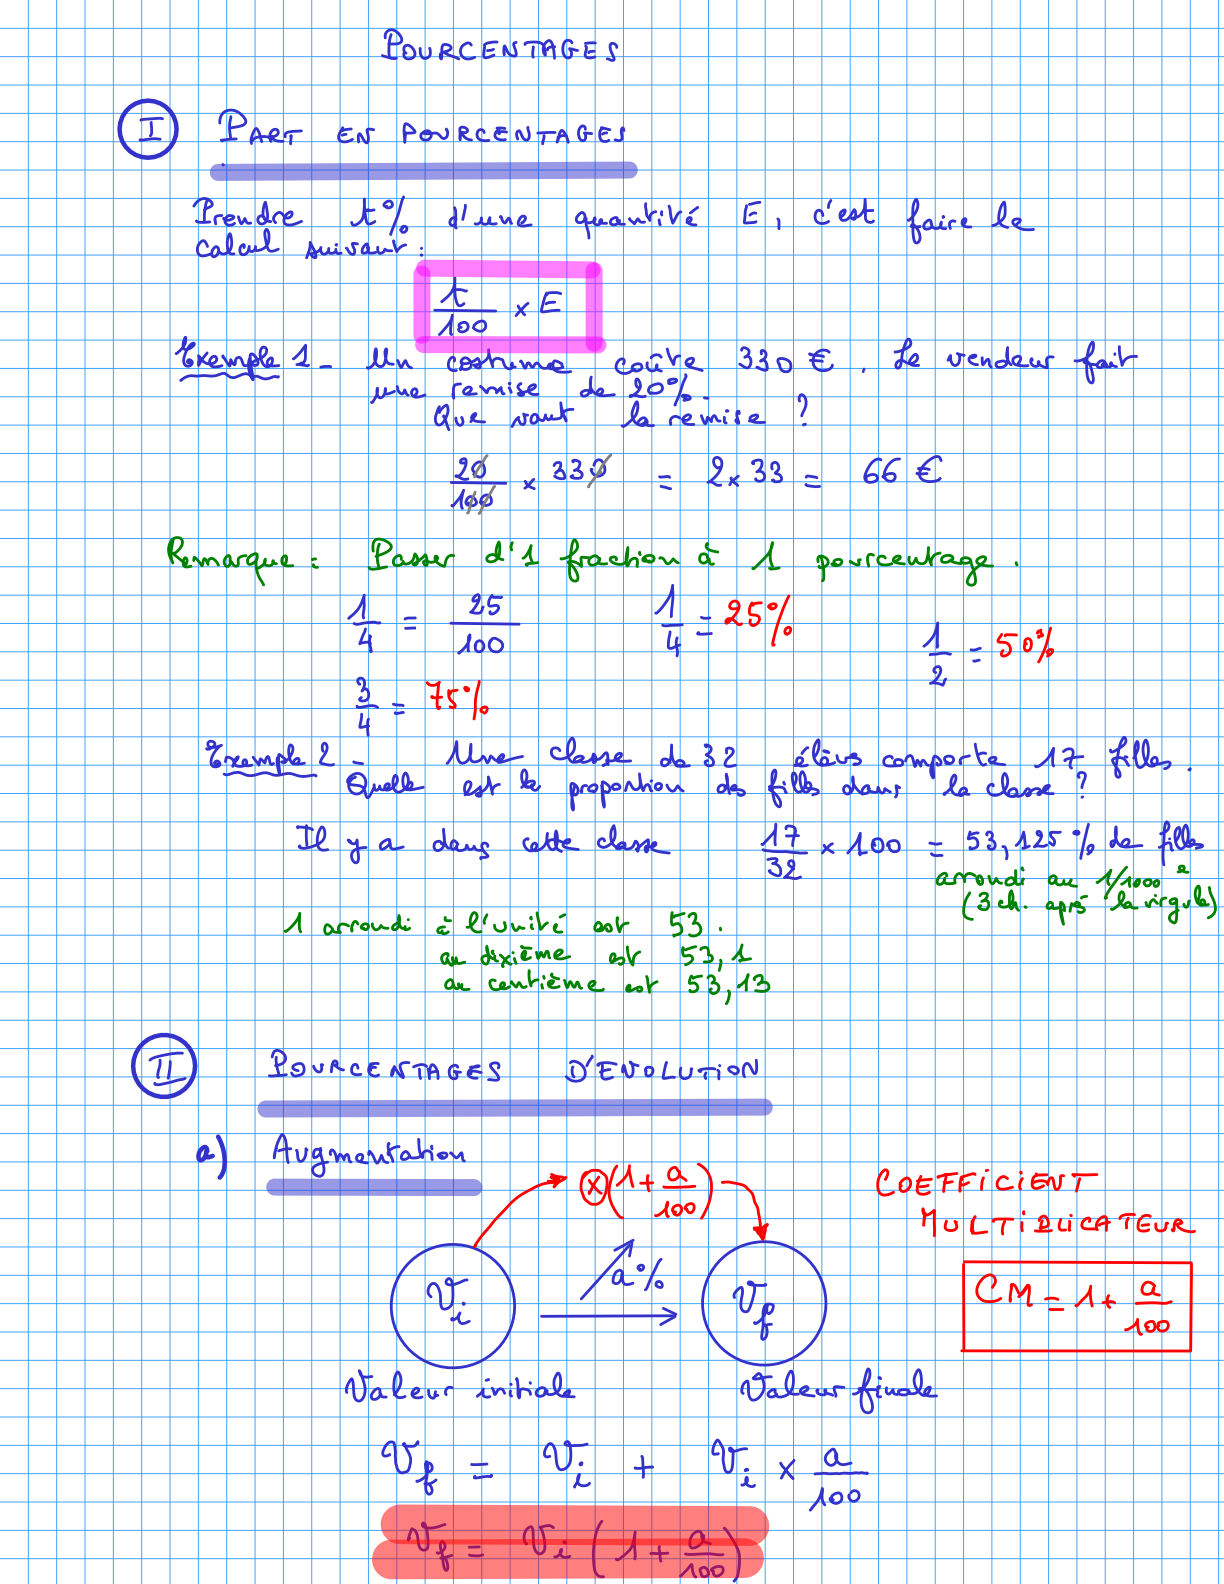 POURCENTAGES
I PART EN POURCENTAGES
Prendre t% d'une quantité E, c'est faire le
calcul suivant :
t/100 × E
Exemple 1 - Un costume coûte 330 €. Le vendeur fait
une remise de 20%.
Que vaut la remise ?
20/100 × 330 = 2 × 33 = 66 €
Remarque : Passer d'1 fraction à 1 pourcentage.
1/4 = 25/100 1/4 = 25% 1/2 = 50%
3/4 = 75%
Exemple 2 - Une classe de 32 élèves comporte 17 filles.
Quelle est la proportion des filles dans la classe ?
Il y a dans cette classe 17/32 × 100 = 53,125 % de filles
arrondi au 1/1000 e
(3 ch. après la virgule)
1 arrondi à l'unité est 53.
au dixième est 53,1
au centième est 53,13
II POURCENTAGES D'EVOLUTION
a) Augmentation
× (1 + a/100) COEFFICIENT
MULTIPLICATEUR
Vi a% Vf CM = 1 + a/100
Valeur initiale Valeur finale
Vf = Vi + Vi × a/100
Vf = Vi (1 + a/100)